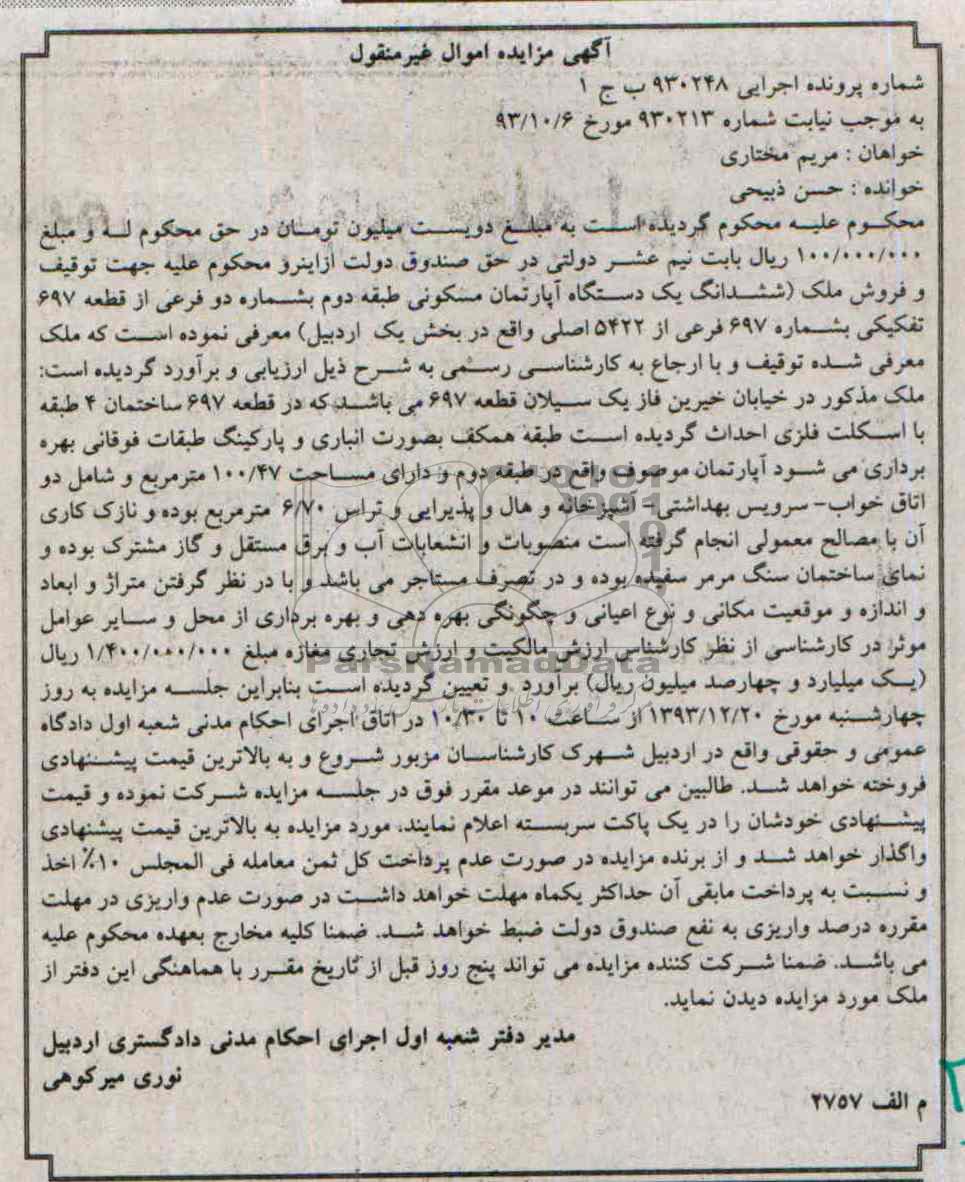 آگهی مزایده اموال غیرمنقول
شماره پرونده اجرایی ۹۳۰۲۴۸ ب ج ۱
به موجب نیابت شماره ۹۳۰۲۱۳ مورخ ۹۳/۱۰/۶
خواهان : مریم مختاری
خوانده : حسن ذبیحی
محکوم علیه محکوم گردیده است به مبلغ دویست میلیون تومان در حق محکوم له و مبلغ
۱۰۰/۰۰۰/۰۰۰ ریال بابت نیم عشر دولتی در حق صندوق دولت ازاینرو محکوم علیه جهت توقیف
و فروش ملک (ششدانگ یک دستگاه آپارتمان مسکونی طبقه دوم بشماره دو فرعی از قطعه ۶۹۷
تفکیکی بشماره ۶۹۷ فرعی از ۵۴۲۲ اصلی واقع در بخش یک اردبیل) معرفی نموده است که ملک
معرفی شده توقیف و با ارجاع به کارشناسی رسمی به شرح ذیل ارزیابی و برآورد گردیده است:
ملک مذکور در خیابان خیرین فاز یک سیلان قطعه ۶۹۷ می باشد که در قطعه ۶۹۷ ساختمان ۴ طبقه
با اسکلت فلزی احداث گردیده است طبقه همکف بصورت انباری و پارکینگ طبقات فوقانی بهره
برداری می شود آپارتمان موصوف واقع در طبقه دوم و دارای مساحت ۱۰۰/۴۷ مترمربع و شامل دو
اتاق خواب- سرویس بهداشتی- اشپزخانه و هال و پذیرایی و تراس ۶/۷۰ مترمربع بوده و نازک کاری
آن با مصالح معمولی انجام گرفته است منصوبات و انشعابات آب و برق مستقل و گاز مشترک بوده و
نمای ساختمان سنگ مرمر سفیده بوده و در تصرف مستاجر می باشد و با در نظر گرفتن متراژ و ابعاد
و اندازه و موقعیت مکانی و نوع اعیانی و چگونگی بهره دهی و بهره برداری از محل و سایر عوامل
موثر در کارشناسی از نظر کارشناس ارزش مالکیت و ارزش تجاری مغازه مبلغ ۱/۴۰۰/۰۰۰/۰۰۰ ریال
(یک میلیارد و چهارصد میلیون ریال) براورد و تعیین گردیده است بنابراین جلسه مزایده به روز
چهارشنبه مورخ ۱۳۹۳/۱۲/۲۰ از ساعت ۱۰ تا ۱۰/۳۰ در اتاق اجرای احکام مدنی شعبه اول دادگاه
عمومی و حقوقی واقع در اردبیل شهرک کارشناسان مزبور شروع و به بالاترین قیمت پیشنهادی
فروخته خواهد شد. طالبین می توانند در موعد مقرر فوق در جلسه مزایده شرکت نموده و قیمت
پیشنهادی خودشان را در یک پاکت سربسته اعلام نمایند. مورد مزایده به بالاترین قیمت پیشنهادی
واگذار خواهد شد و از برنده مزایده در صورت عدم پرداخت کل ثمن معامله فی المجلس ۱۰٪ اخذ
و نسبت به پرداخت مابقی آن حداکثر یکماه مهلت خواهد داشت در صورت عدم واریزی در مهلت
مقرره درصد واریزی به نفع صندوق دولت ضبط خواهد شد. ضمنا کلیه مخارج بعهده محکوم علیه
می باشد. ضمنا شرکت کننده مزایده می تواند پنج روز قبل از تاریخ مقرر با هماهنگی این دفتر از
ملک مورد مزایده دیدن نماید.
مدیر دفتر شعبه اول اجرای احکام مدنی دادگستری اردبیل
نوری میرکوهی
م الف ۲۷۵۷
ParsNamadData